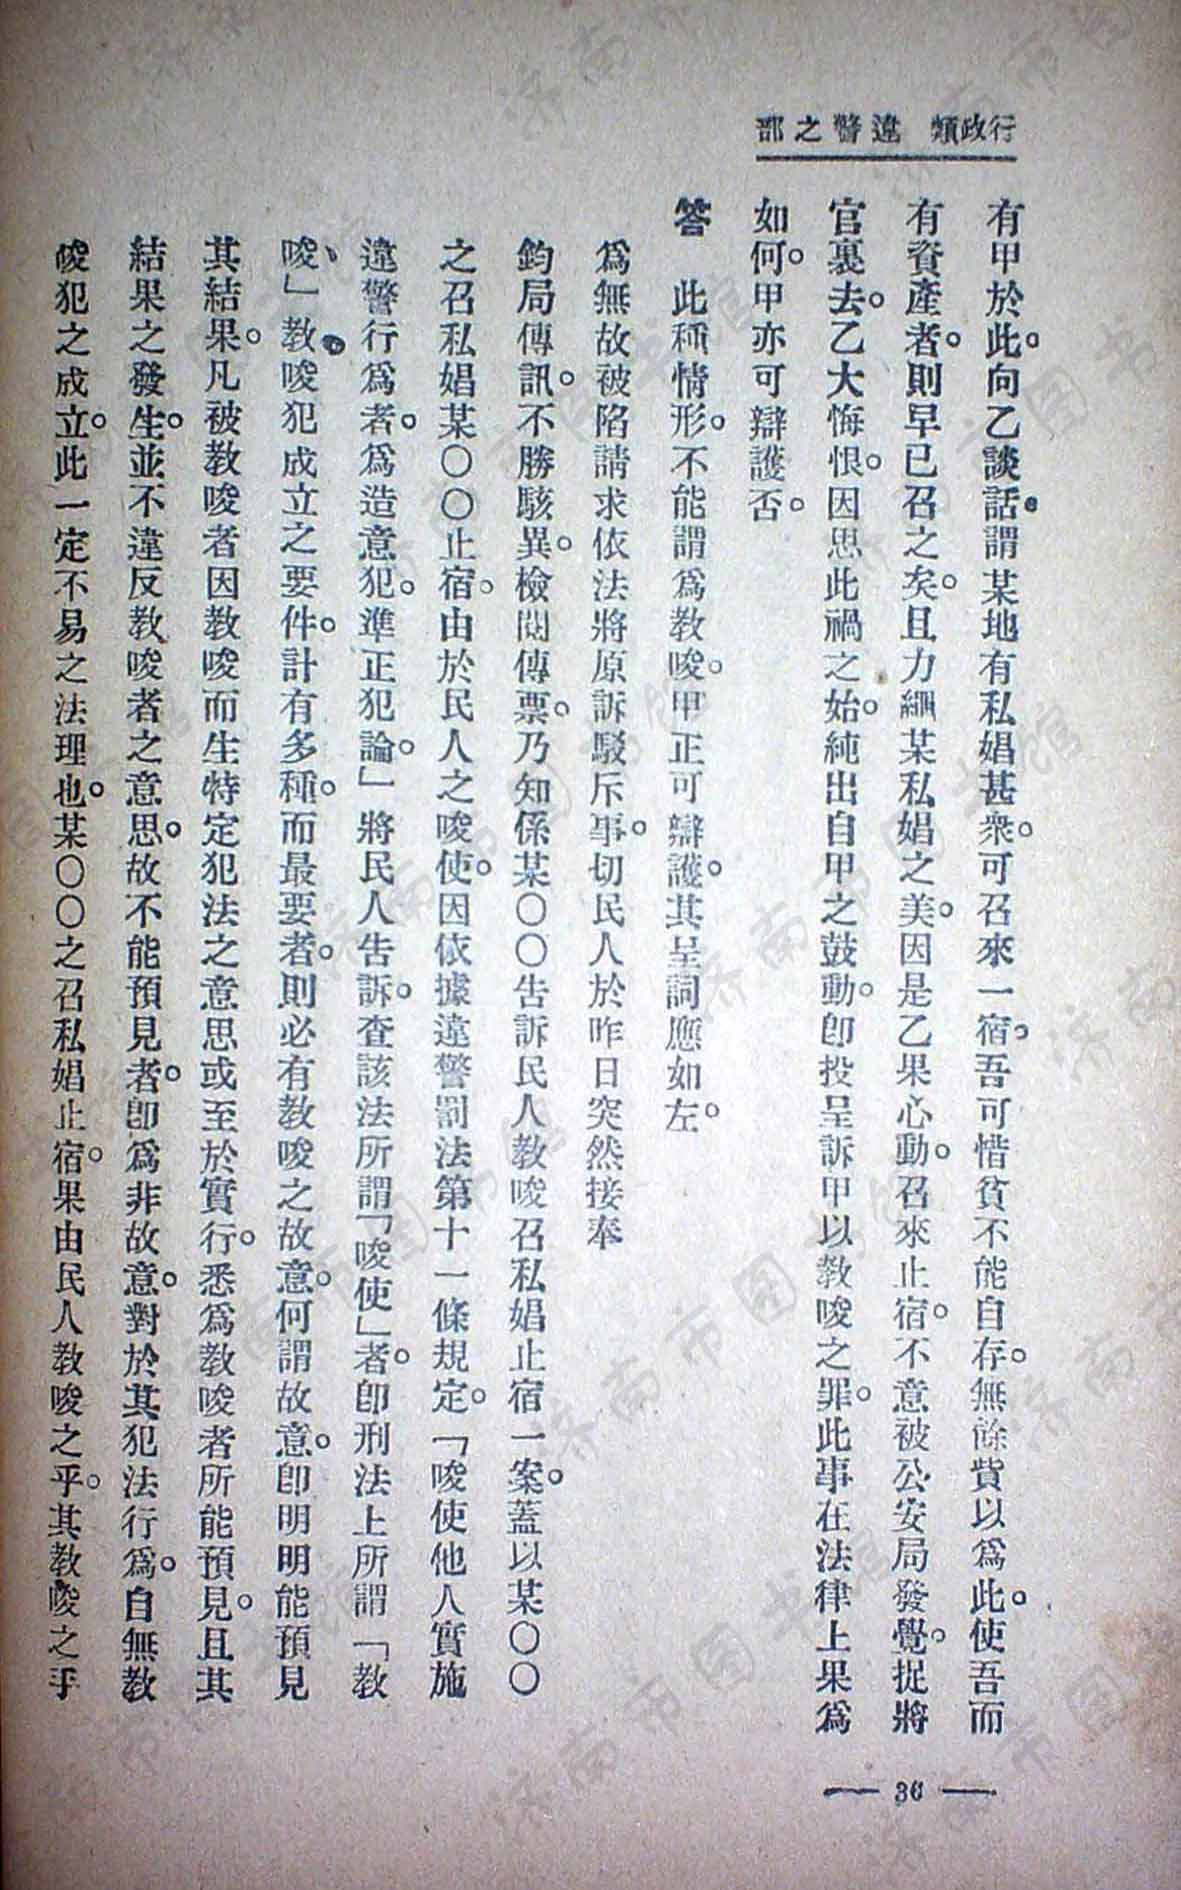 行政類　違警之部
有甲於此。向乙談話。謂某地有私娼甚衆。可召來一宿。吾可惜貧不能自存。無餘貲以爲此。使吾而
有資產者。則早已召之矣。且力繩某私娼之美。因是乙果心動。召來止宿。不意被公安局發覺。捉將
官裏去。乙大悔恨。因思此禍之始。純出自甲之鼓動。卽投呈訴甲以敎唆之罪。此事在法律上果爲
如何。甲亦可辯護否。
答　此種情形。不能謂爲敎唆。甲正可辯護。其呈詞應如左。
爲無故被陷請求依法將原訴駁斥事。切民人於昨日突然接奉
鈞局傳訊。不勝駭異。檢閱傳票。乃知係某〇〇告訴民人敎唆召私娼止宿一案。蓋以某〇〇
之召私娼某〇〇止宿。由於民人之唆使。因依據違警罰法第十一條規定。「唆使他人實施
違警行爲者。爲造意犯。準正犯論。」將民人告訴。查該法所謂「唆使」者。卽刑法上所謂「敎
唆」敎唆犯成立之要件。計有多種。而最要者。則必有敎唆之故意。何謂故意。卽明明能預見
其結果。凡被敎唆者因敎唆而生特定犯法之意思或至於實行。悉爲敎唆者所能預見。且其
結果之發生。並不違反敎唆者之意思。故不能預見者。卽爲非故意。對於其犯法行爲。自無敎
唆犯之成立。此一定不易之法理也。某〇〇之召私娼止宿。果由民人敎唆之乎。其敎唆之乎
— 36 —
济南市图书馆